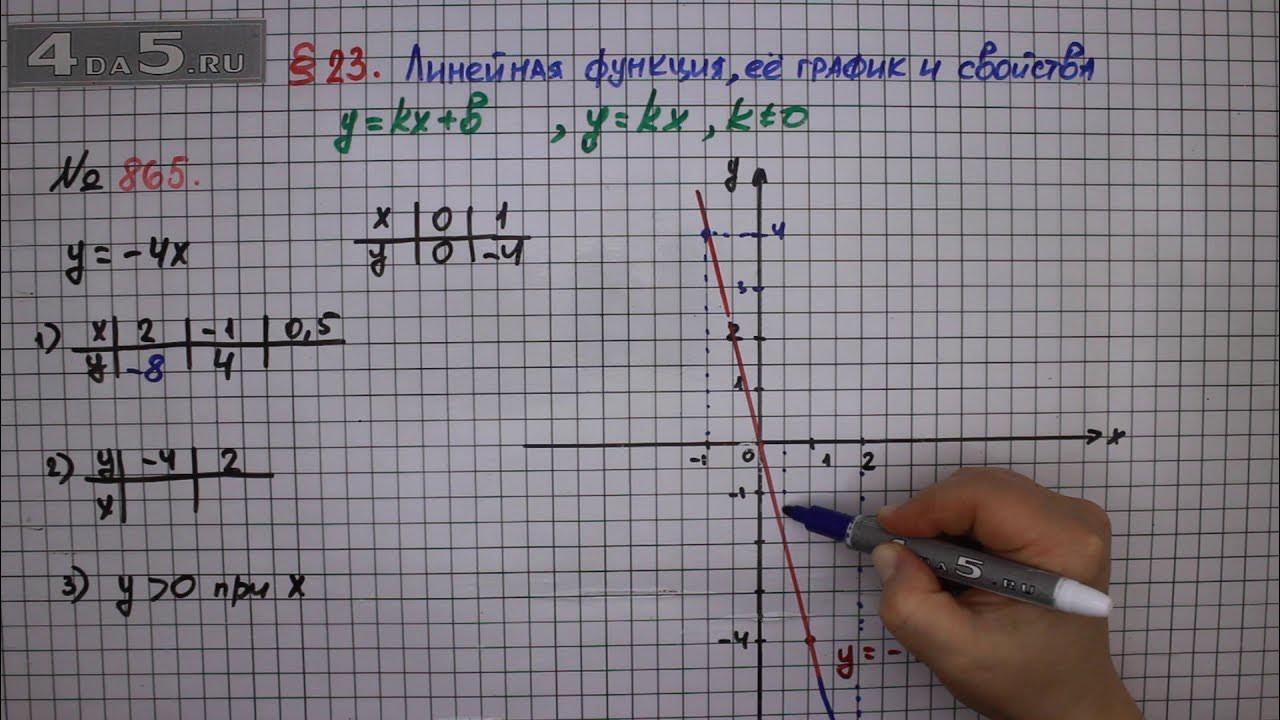 4DA5.RU
§ 23. Линейная функция, её график и свойства
y = kx + b , y = kx , k ≠ 0
№ 865.
y = -4x
x | 0 | 1
y | 0 | -4
1) x | 2 | -1 | 0,5
y | -8 | 4 |
2) y | -4 | 2
x | |
3) y > 0 при x
y
4
3
2
1
-1 0 1 2 x
-1
-4
y = -
DA5.RU